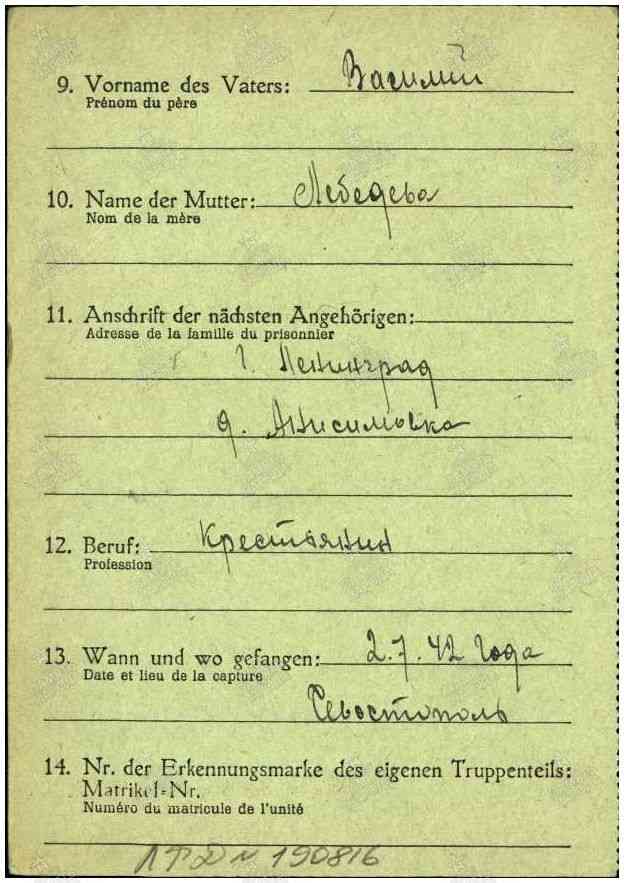 9. Vorname des Vaters: Василий
Prénom du père
10. Name der Mutter: Лебедева
Nom de la mère
11. Anschrift der nächsten Angehörigen:
Adresse de la famille du prisonnier
г. Ленинград
д. Анисимовка
12. Beruf: Крестьянин
Profession
13. Wann und wo gefangen: 2.7.42 года
Date et lieu de la capture
Севостополь
14. Nr. der Erkennungsmarke des eigenen Truppenteils:
Matrikel-Nr.
Numéro du matricule de l'unité
190816